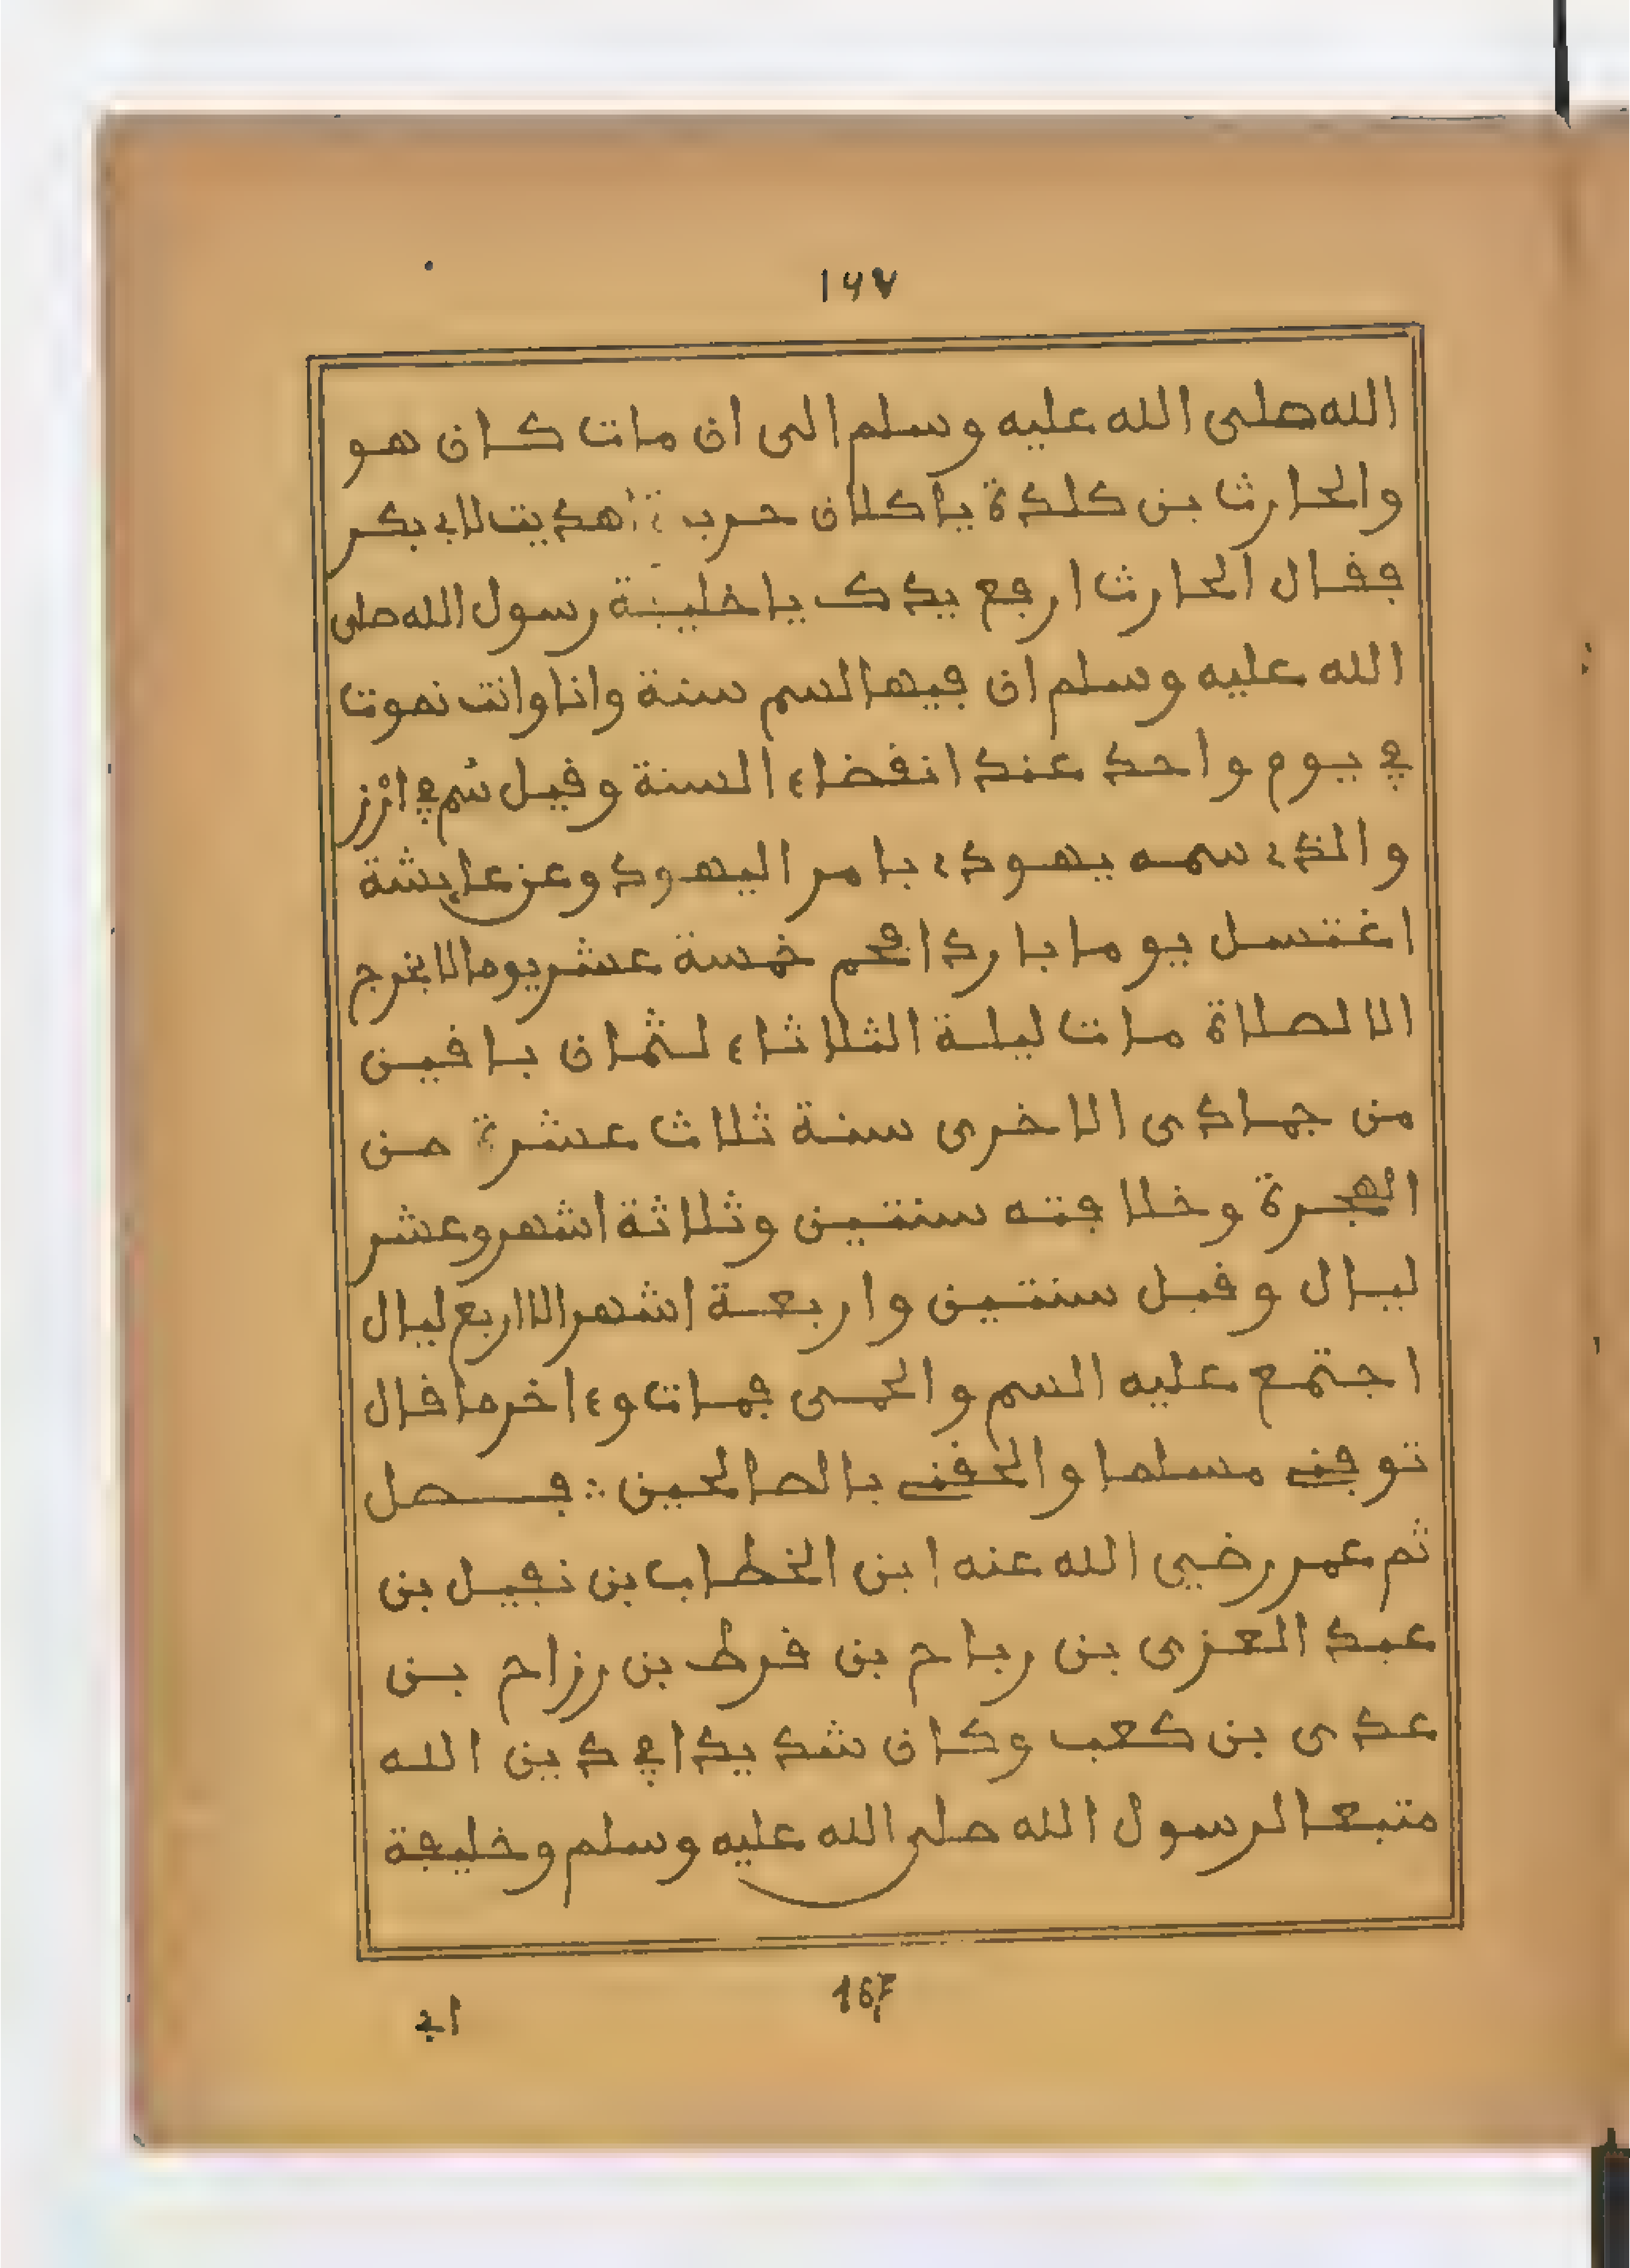 ١٦٧
الله صلى الله عليه وسلم الى ان مات كان هو
والحارث بن كلدة ياكلان حريرة اهديت لابي بكر
فقال الحارث ارفع يدك يا خليفة رسول الله صلى
الله عليه وسلم ان فيها السم سنة وانا وانت نموت
في يوم واحد عند انقضاء السنة وقيل سم في ارز
والذي سمه يهودي بامر اليهود وعن عايشة
اغتسل يوما باردا فحم خمسة عشر يوما لا يخرج
الا لصلاة مات ليلة الثلاثاء لثمان باقين
من جمادى الاخرى سنة ثلاث عشرة من
الهجرة وخلافته سنتين وثلاثة اشهر وعشر
ليال وقيل سنتين واربعة اشهر الا اربع ليال
اجتمع عليه السم والحمى فمات وءاخر ما قال
توفني مسلما والحقني بالصالحين ∴ فصل
ثم عمر رضي الله عنه ابن الخطاب بن نفيل بن
عبد العزى بن رباح بن قرط بن رزاح بن
عدى بن كعب وكان شديدا في دين الله
متبعا لرسول الله صلى الله عليه وسلم وخليفة
167
ابي